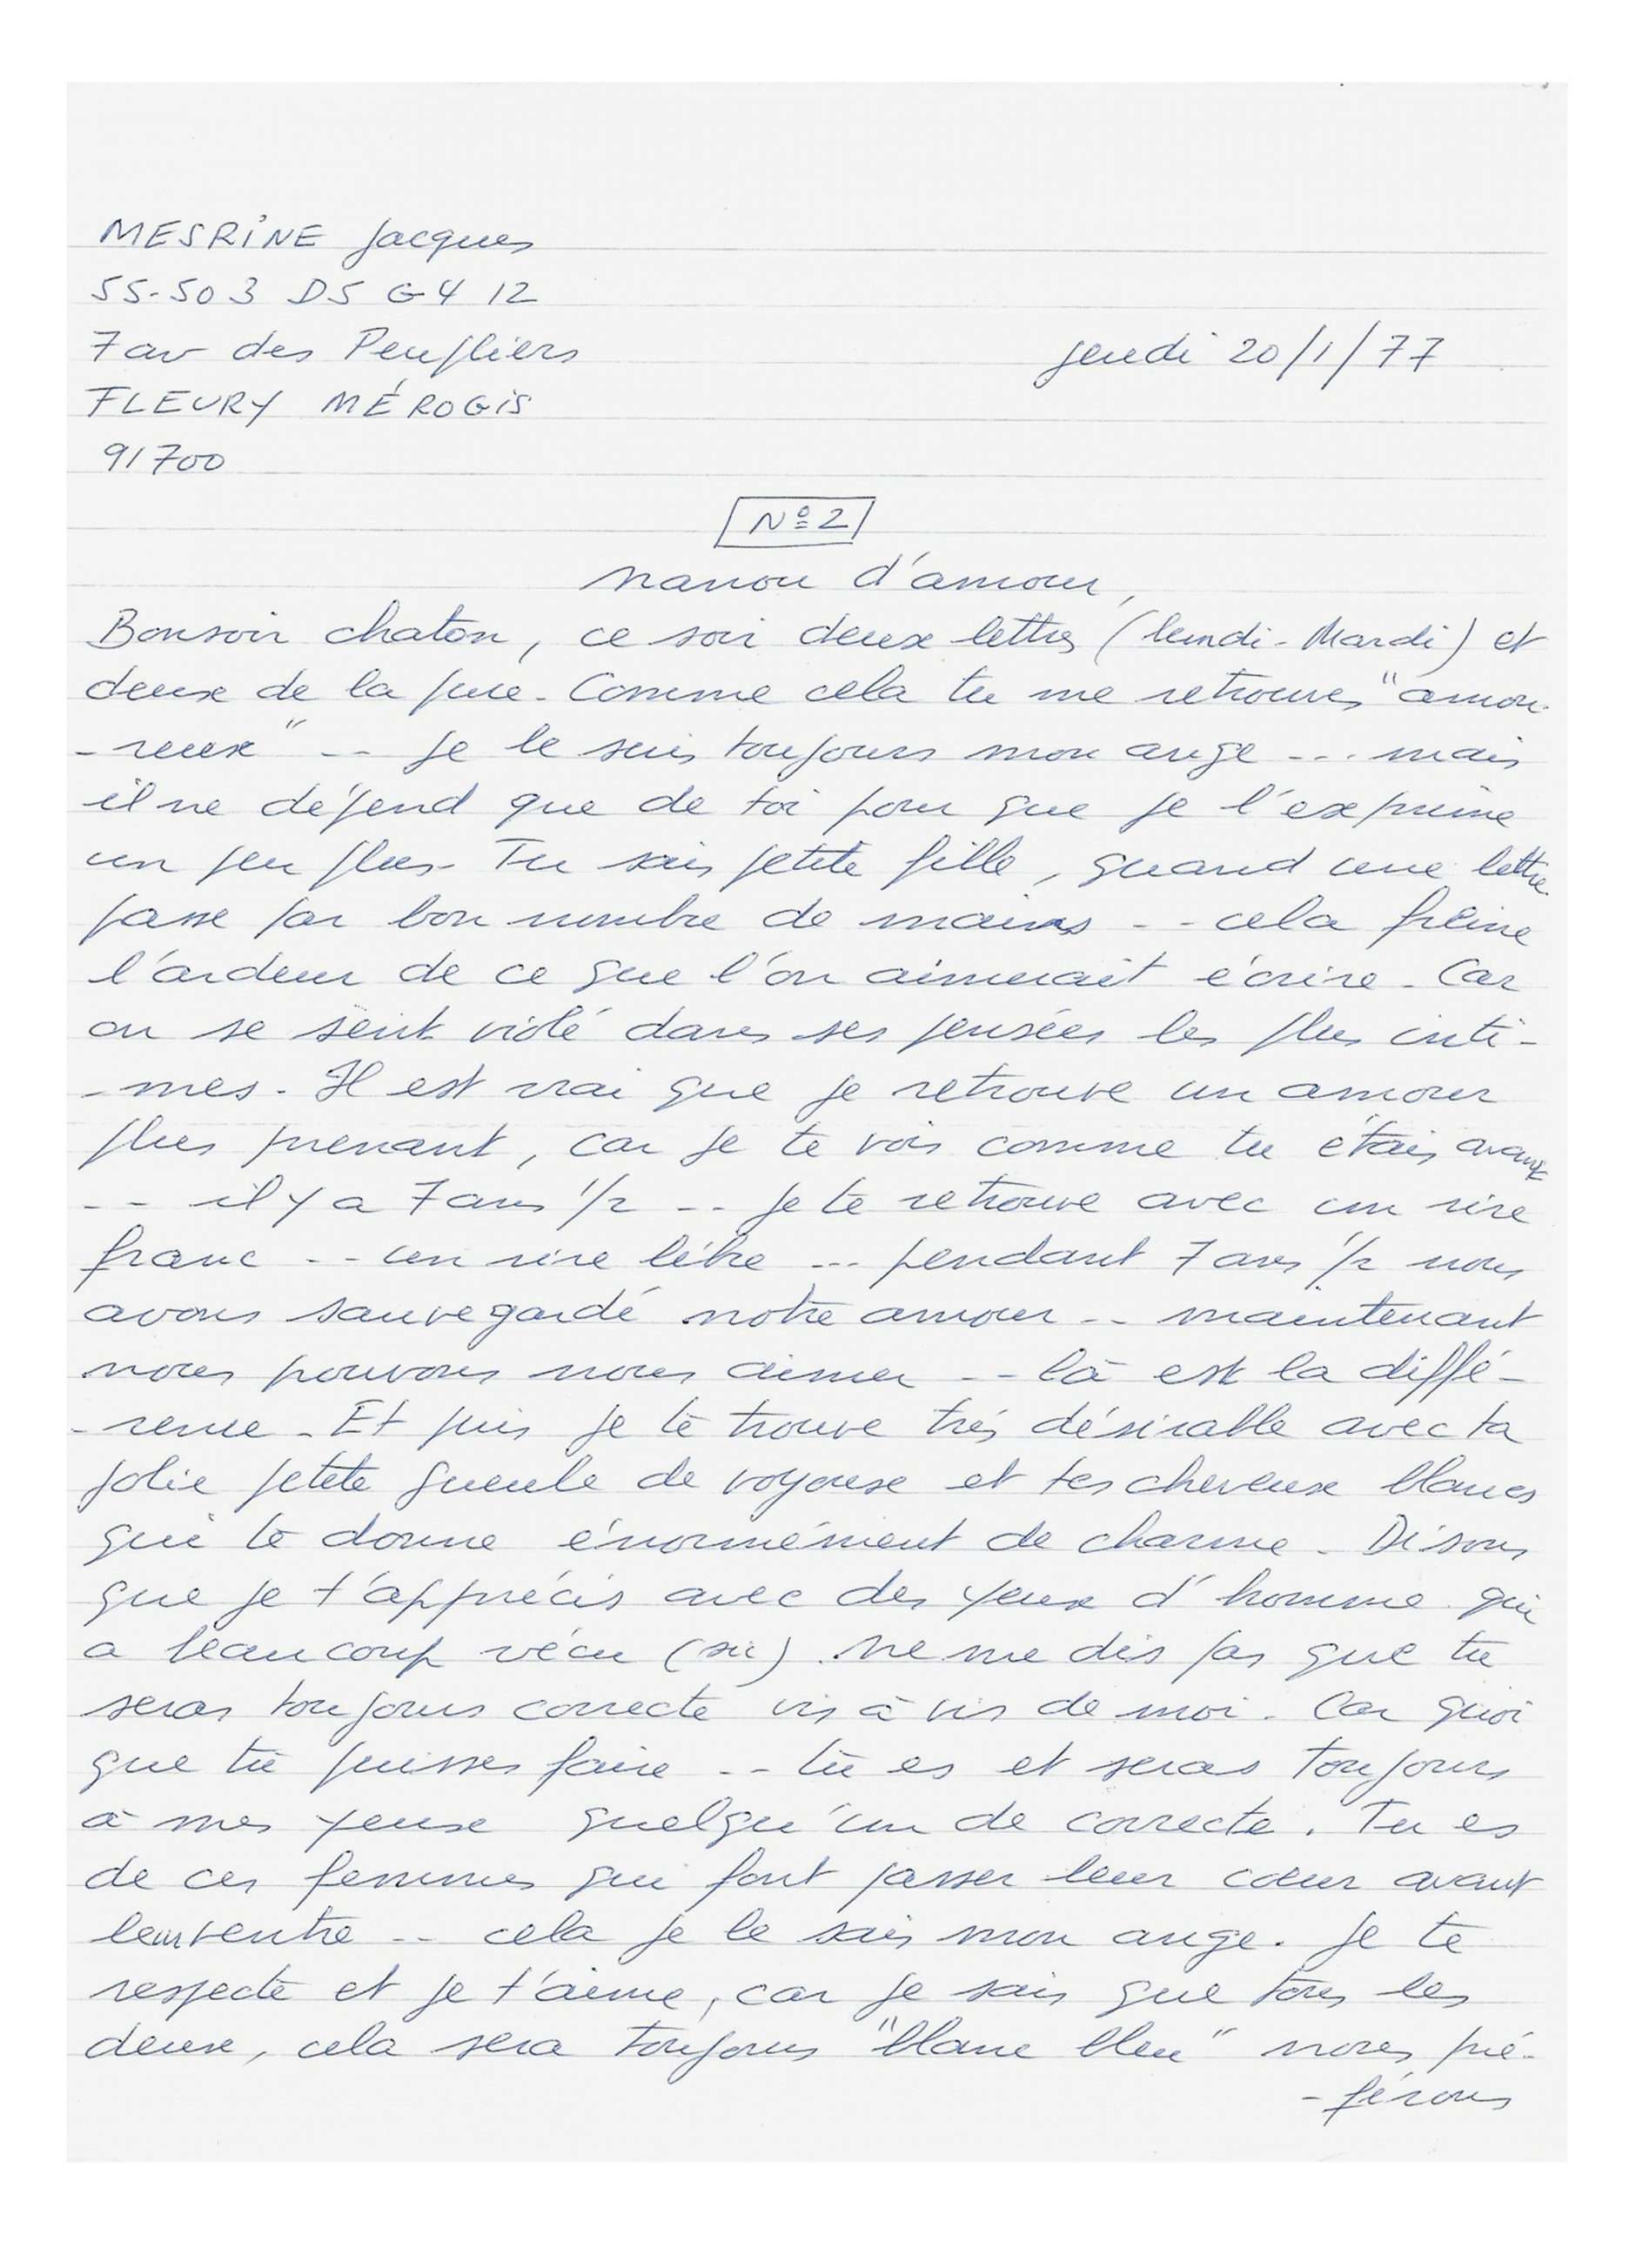 MESRINE Jacques
55-503 D5 G4 12
7 av des Peupliers
jeudi 20/1/77
FLEURY MÉROGIS
91700
Nº 2
nanou d'amour,
Bonsoir chaton, ce soir deux lettres (lundi - Mardi) et
deux de la puce. Comme cela tu me retrouves "amou-
-reux" -- je le suis toujours mon ange --- mais
il ne dépend que de toi pour que je l'exprime
un peu plus. Tu sais petite fille, quand une lettre
passe par bon nombre de mains -- cela freine
l'ardeur de ce que l'on aimerait écrire. Car
on se sent violé dans ses pensées les plus inti-
-mes. Il est vrai que je retrouve un amour
plus prenant, car je te vois comme tu étais avant
-- il y a 7 ans 1/2 -- je te retrouve avec un rire
franc -- un rire libre --- pendant 7 ans 1/2 nous
avons sauvegardé notre amour -- maintenant
nous pouvons nous aimer -- là est la diffé-
-rence. Et puis je te trouve très désirable avec ta
jolie petite gueule de voyouse et tes cheveux blancs
qui te donne énormément de charme. Disons
que je t'apprécis avec des yeux d'homme qui
a beaucoup vécu (sic). ne me dis pas que tu
seras toujours correcte vis à vis de moi. Car quoi
que tu puisses faire -- tu es et seras toujours
à mes yeux quelqu'un de correcte. Tu es
de ces femmes qui font passer leur coeur avant
leur ventre -- cela je le sais mon ange. Je te
respecte et je t'aime, car je sais que tous les
deux, cela sera toujours "blanc bleu" nous pré-
-férons